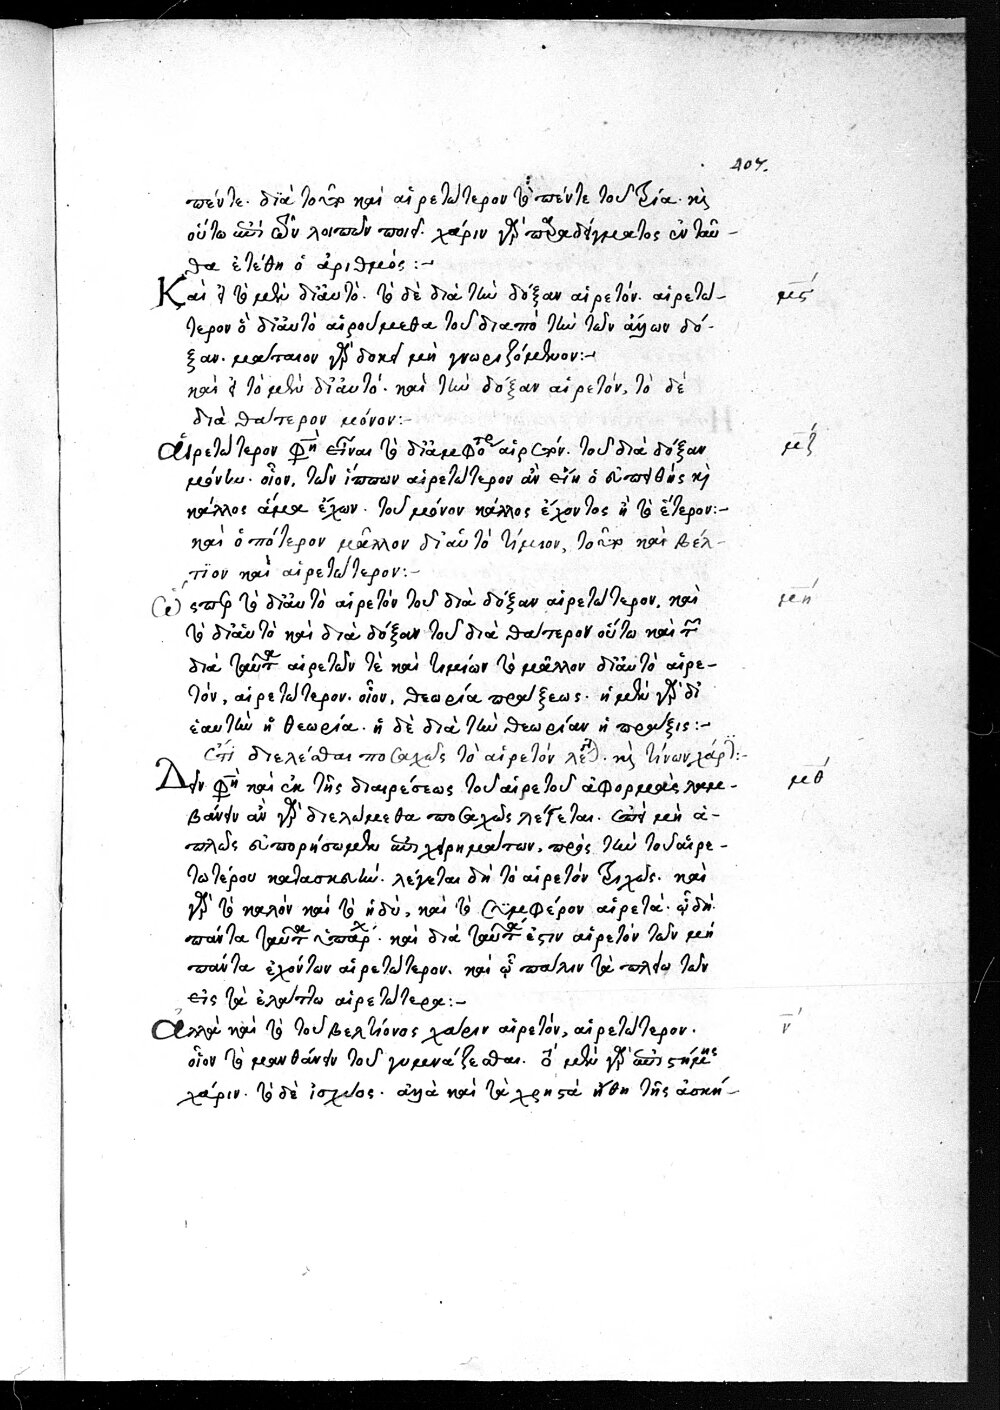 407.
πέντε. διὰ τοῦτο καὶ αἱρετώτερον τὸ πέντε τοῦ τρία. καὶ
οὕτω ἐπὶ τῶν λοιπῶν ποιεῖ. χάριν γὰρ παραδείγματος ἐνταῦ-
θα ἐτέθη ὁ ἀριθμός :-
Καὶ εἰ τὸ μὲν δι' αὑτό. τὸ δὲ διὰ τὴν δόξαν αἱρετόν. αἱρετώ- μς΄
τερον ὃ δι' αὑτὸ αἱρούμεθα τοῦ διὰ τὴν τῶν ἄλλων δό-
ξαν. μάταιον γὰρ δοκεῖ μὴ γνωριζόμενον :-
καὶ εἰ τὸ μὲν δι' αὑτό. καὶ τὴν δόξαν αἱρετόν, τὸ δὲ
διὰ θάτερον μόνον :-
Αἱρετώτερον φησὶ εἶναι τὸ δι' ἄμφω αἱρετόν. τοῦ διὰ δόξαν μζ΄
μόνην. οἷον, τῶν ἵππων αἱρετώτερον ἂν εἴη ὁ εὐπειθὴς καὶ
κάλλος ἅμα ἔχων. τοῦ μόνον κάλλος ἔχοντος ἢ τὸ ἕτερον :-
καὶ ὁπότερον μᾶλλον δι' αὑτὸ τίμιον, τοῦτο καὶ βέλ-
τιον καὶ αἱρετώτερον :-
ὥσπερ τὸ δι' αὑτὸ αἱρετὸν τοῦ διὰ δόξαν αἱρετώτερον. καὶ μη΄
τὸ δι' αὑτὸ καὶ διὰ δόξαν τοῦ διὰ θάτερον οὕτω καὶ τῶν
διὰ ταῦτα αἱρετῶν τὲ καὶ τιμίων τὸ μᾶλλον δι' αὑτὸ αἱρε-
τόν, αἱρετώτερον. οἷον, θεωρία πράξεως. ἡ μὲν γὰρ δι'
ἑαυτὴν ἡ θεωρία. ἡ δὲ διὰ τὴν θεωρίαν ἡ πρᾶξις :-
ἔτι διελέσθαι ποσαχῶς τὸ αἱρετὸν λέγεται. καὶ τίνων χάριν :-
Δεῖ φησὶ καὶ ἐκ τῆς διαιρέσεως τοῦ αἱρετοῦ ἀφορμὰς λαμ- μθ΄
βάνειν ἂν γὰρ διελώμεθα ποσαχῶς λέγεται. ἐπεὶ μὴ ἁ-
πλῶς εὐπορήσωμεν ἐπιχειρημάτων, πρὸς τὴν τοῦ αἱρε-
τωτέρου κατασκευήν. λέγεται δὴ τὸ αἱρετὸν τριχῶς. καὶ
γὰρ τὸ καλὸν καὶ τὸ ἡδύ, καὶ τὸ συμφέρον αἱρετά. ᾧ δὴ
πάντα ταῦτα ὑπάρχει. καὶ διὰ ταῦτα ἐστιν αἱρετὸν τῶν μὴ
πάντα ἐχόντων αἱρετώτερον. καὶ ᾧ πάλιν τὰ πλείω τῶν
εἰς τὰ ἐλάττω αἱρετώτερα :-
Ἀλλὰ καὶ τὸ τοῦ βελτίονος χάριν αἱρετόν, αἱρετώτερον. ν΄
οἷον τὸ μανθάνειν τοῦ γυμνάζεσθαι. ὃ μὲν γὰρ ἐπιστήμης
χάριν. τὸ δὲ ἰσχύος. ἀλλὰ καὶ τὰ χρηστὰ ἤθη τῆς ἀσκή-